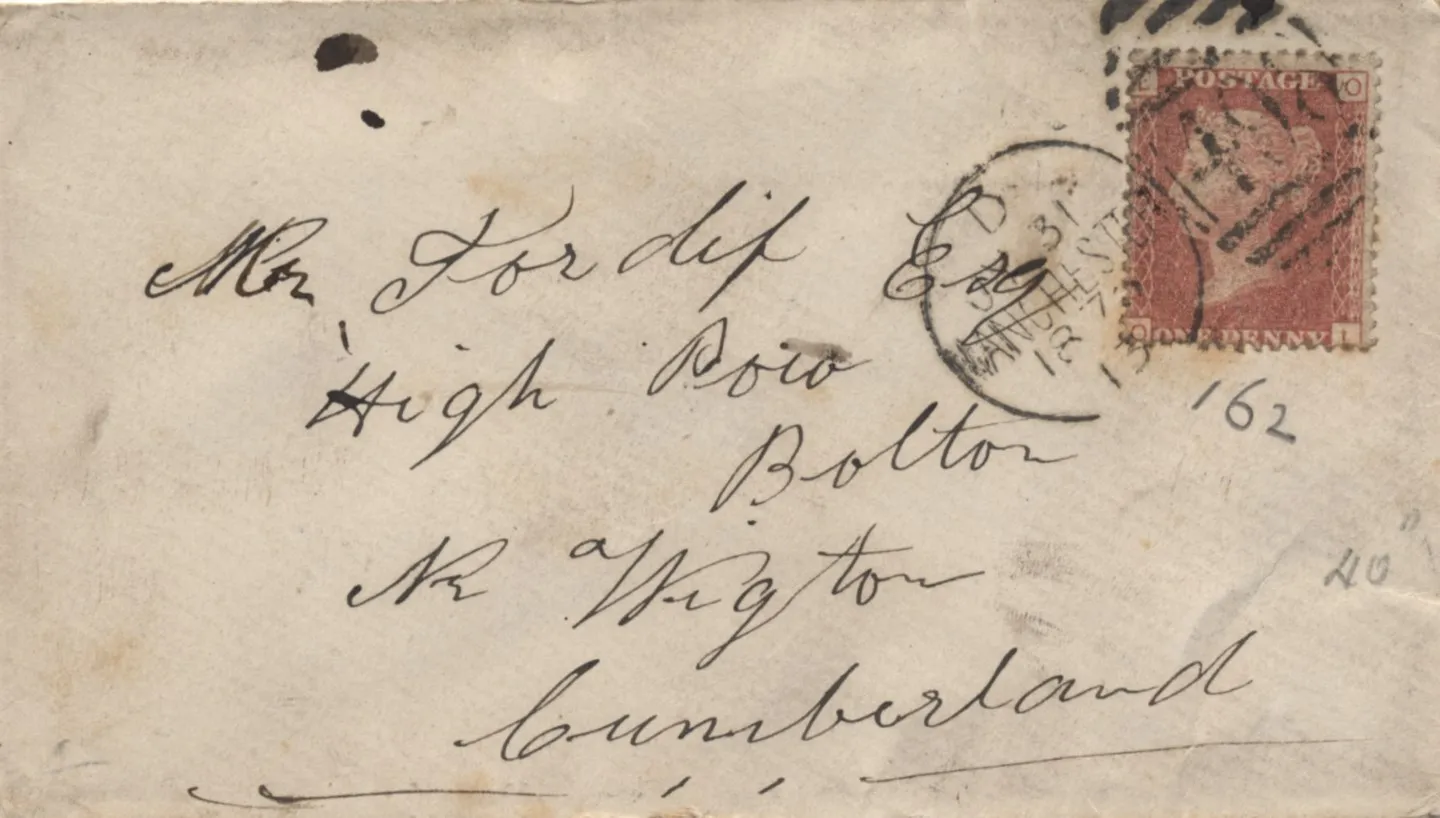 POSTAGE
ONE PENNY
Mr Fordif Esq
High Row
Bolton
Nr Wigton
Cumberland
162
40
MANCHESTER
31